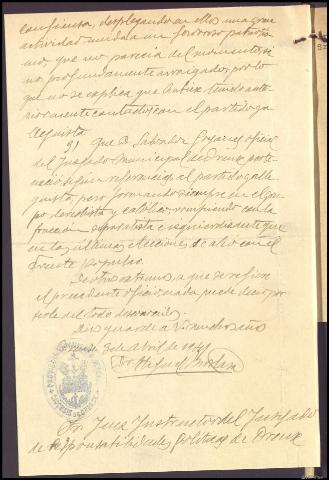 confianza, desplegando en ellos una gran
actividad unida a un fervoroso patriotis
mo, que no parecia del momento, si
no profundamente arraigado, por lo
que no se explica que hubiese
contacto con el partido ga
lleguista.
3) que D. Salvador oficial
del Juzgado Municipal de Orense perte
neció según referencias, al partido galle
guista, pero formando siempre en el gru
po derechista y católico, rompiendo con la
fracción separatista e izquierdista que
en las últimas elecciones se alió con el
Frente Popular.
De otros extremos, a que se refiere
el precedente oficio nada puede decir por
serle del todo desconocidos.
Dios guarde a V. muchos años
3 de Abril de 1941
Dr. Miguel
Sr. Juez Instructor del Juzgado
de Responsabilidades políticas de Orense